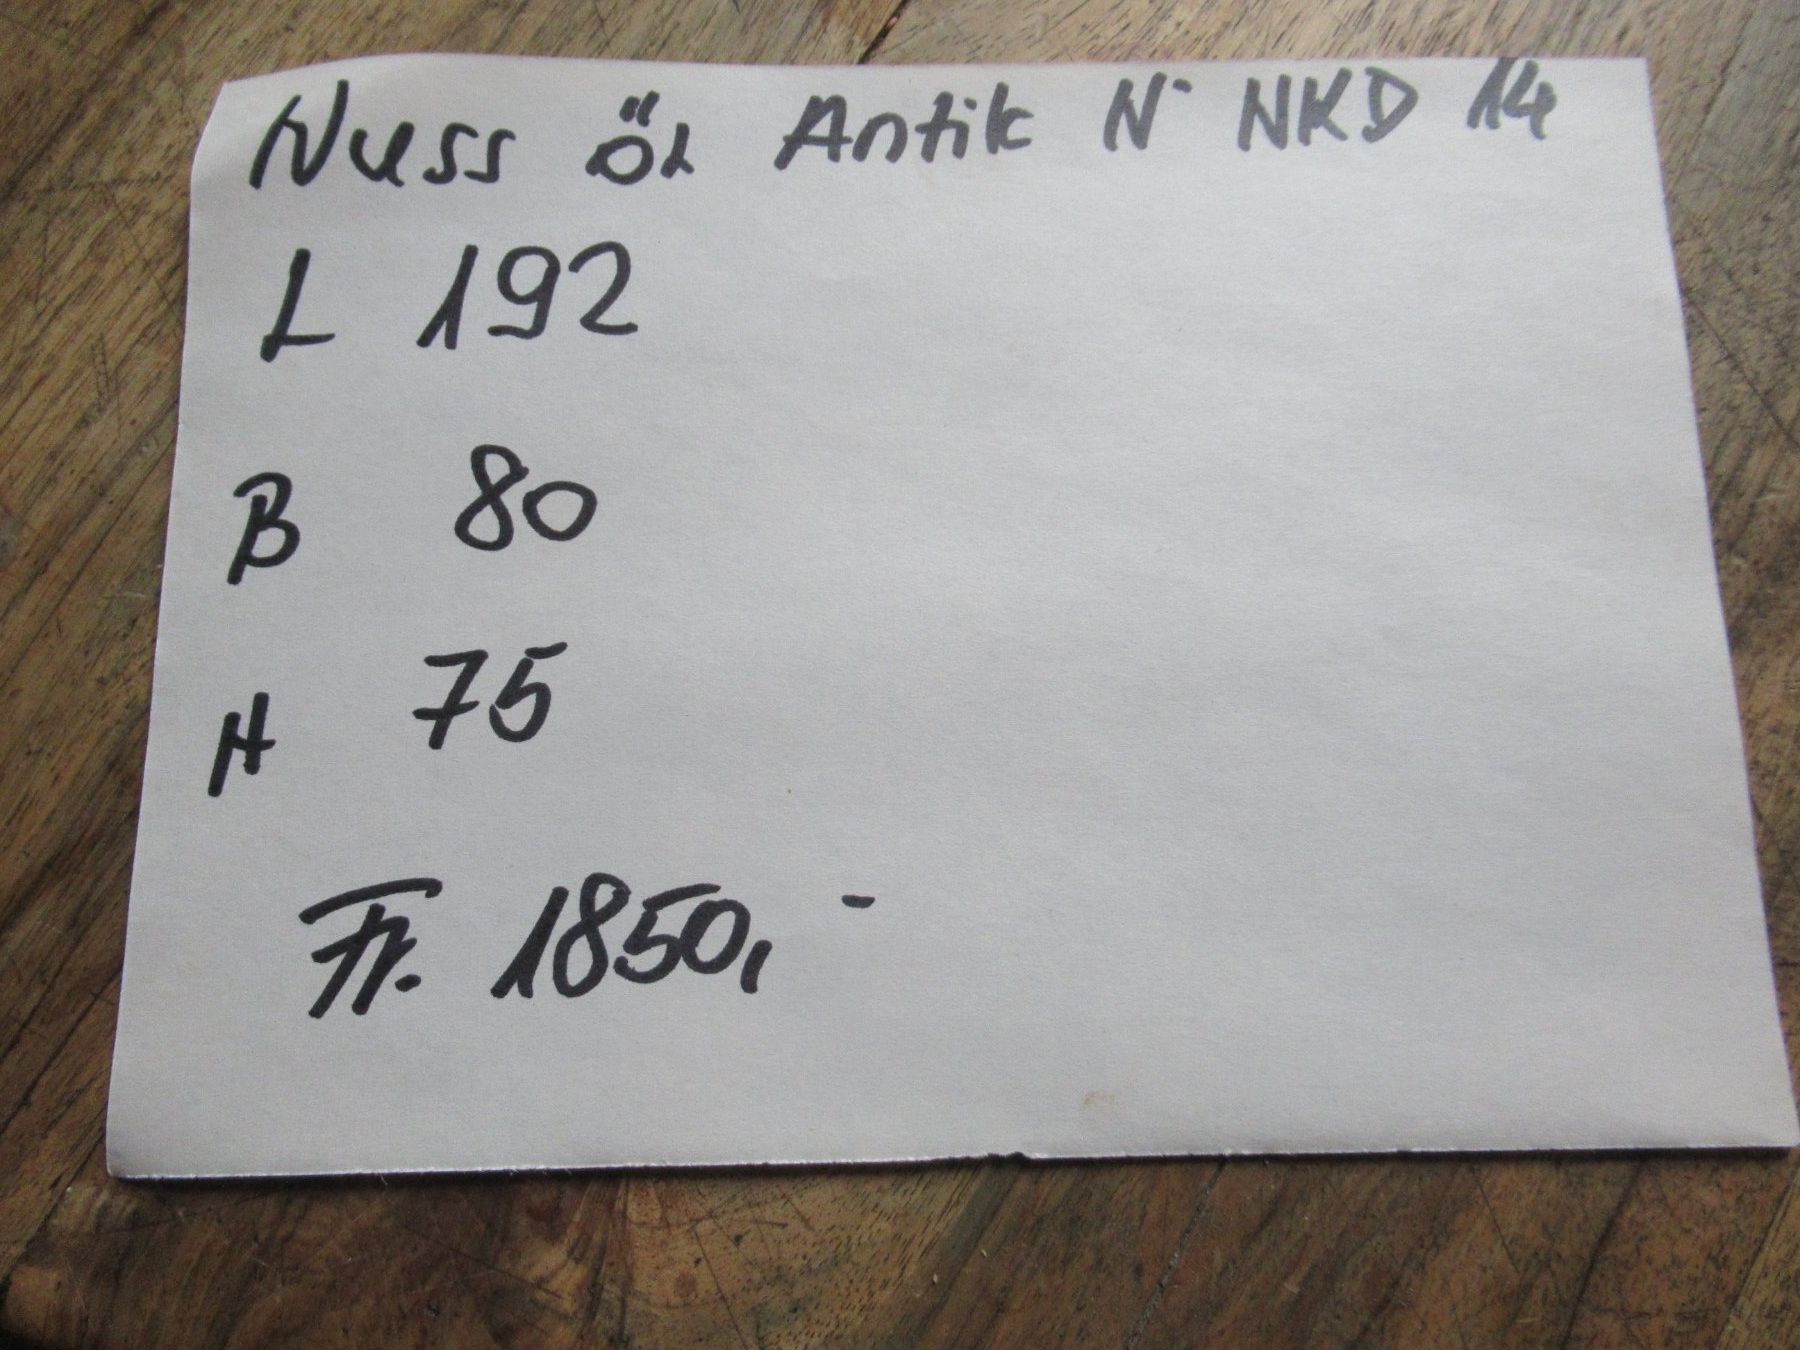 Nuss öL Antik N° NKD 14
L 192
B 80
H 75
Fr. 1850,-